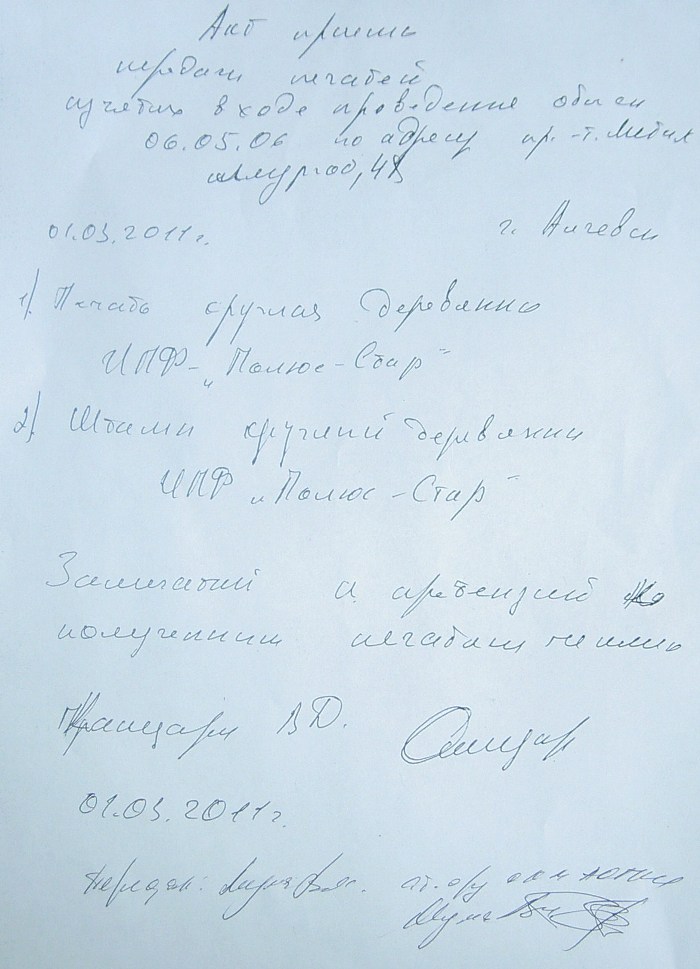 Акт приема
передачи печатей
изъятых в ходе проведение обыска
06.05.06 по адресу пр-т. Метал
лургов, 48
01.03.2011г. г. Алчевск
1) Печать круглая деревянная
ЧПФ- "Полюс-Стар"
2) Штамп круглый деревянный
ЧПФ "Полюс-Стар"
Замечаний и претензий по
полученным печатям не имею
В Д.
01.03.2011г.
Передал: